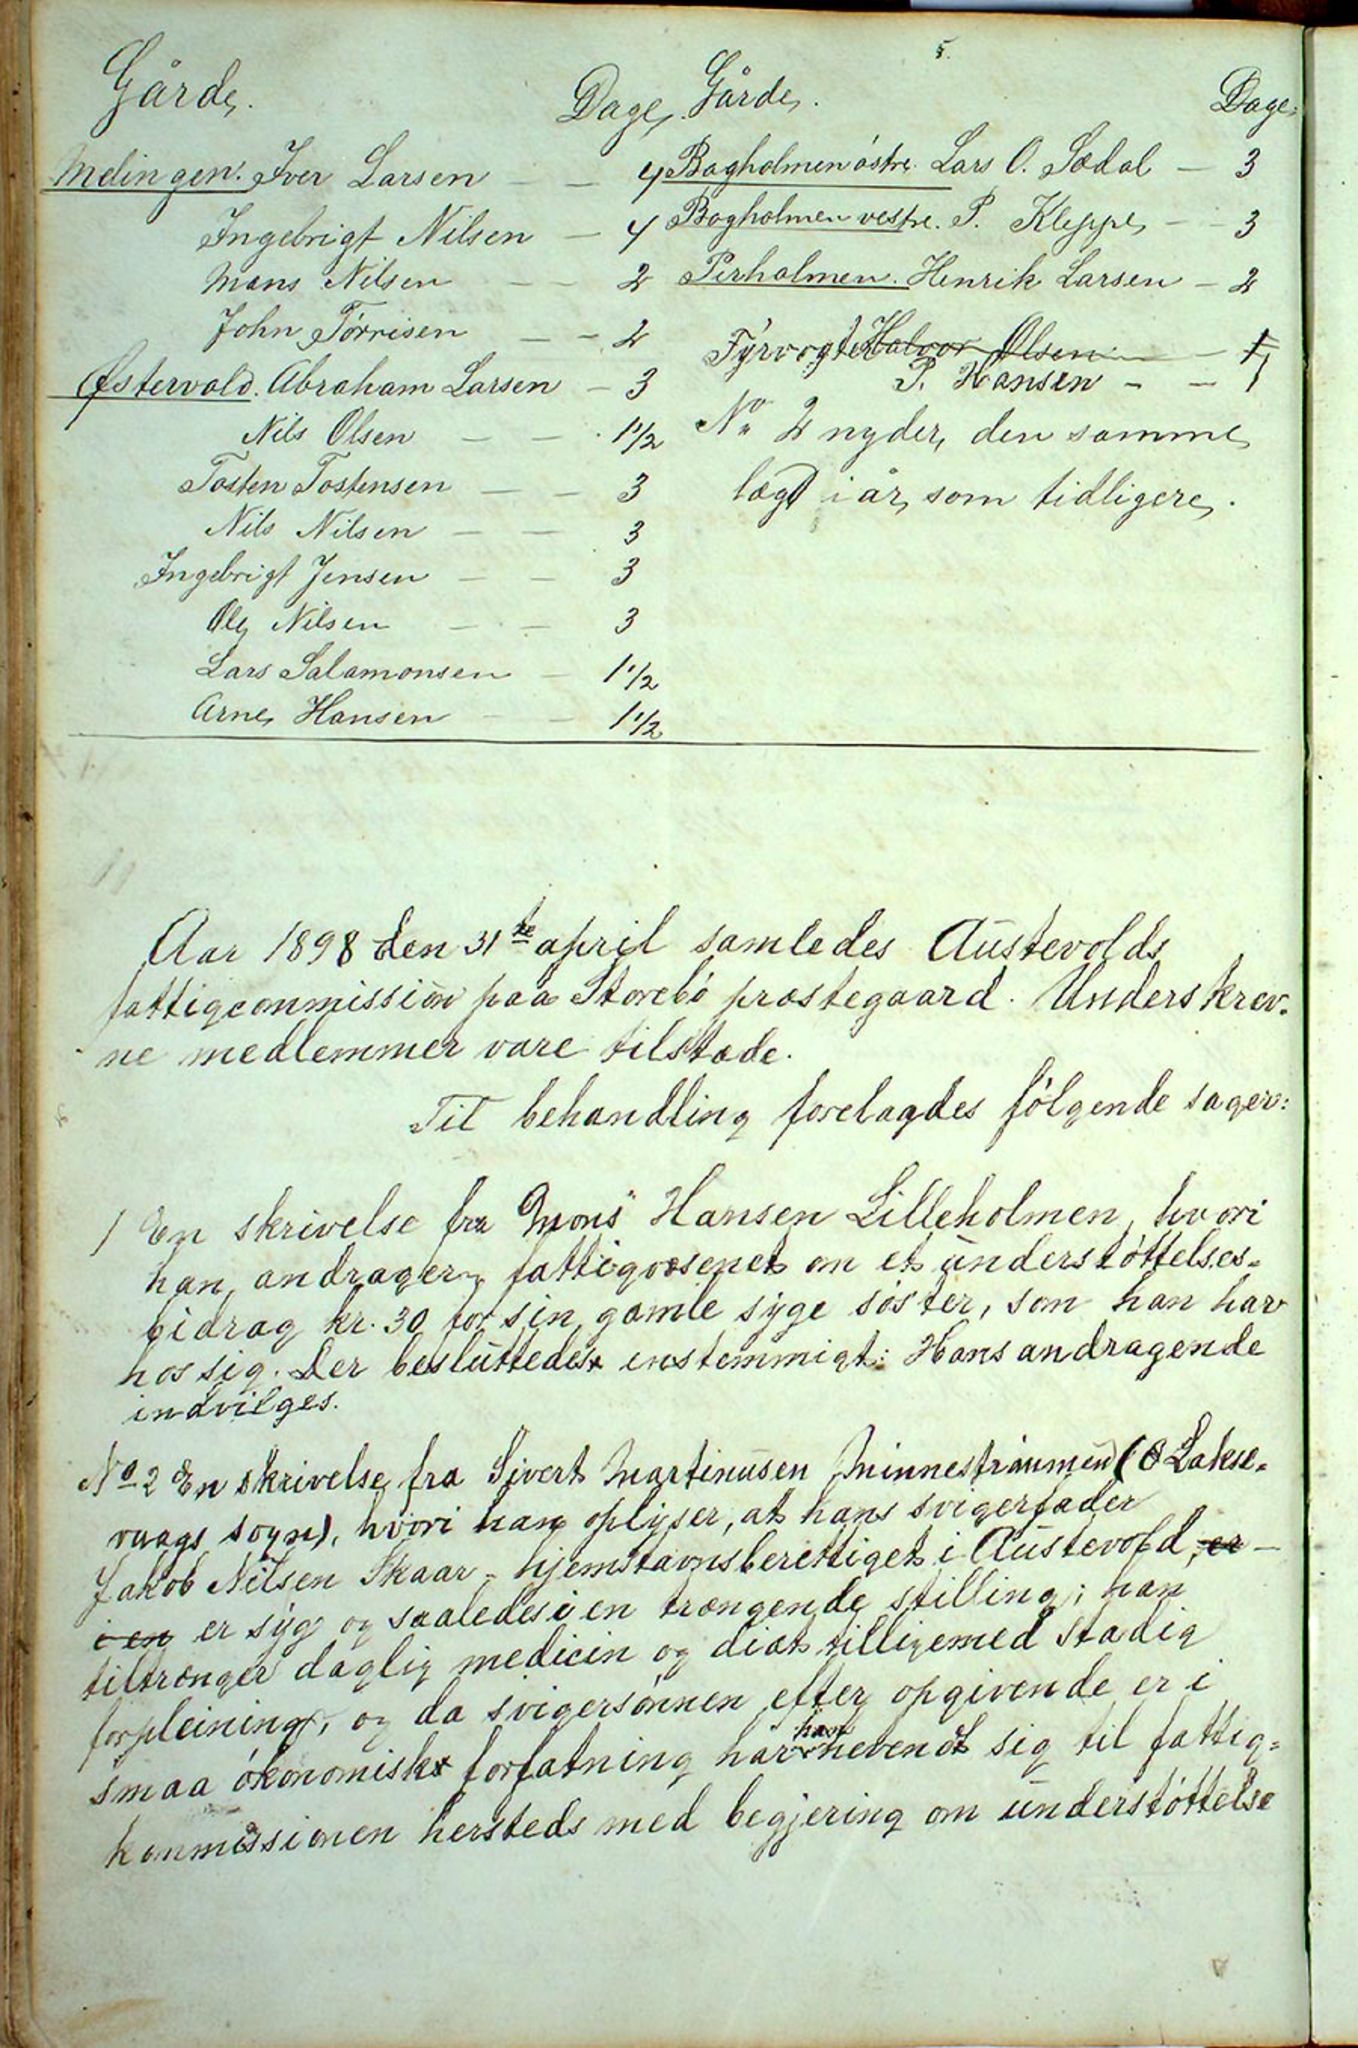 Gårde. Dage,
Melingen. Iver Larsen — — 4
Ingebrigt Nilsen — 4
Mons Nilsen — — 2
John Törrisen — — 2
Østervold. Abraham Larsen — 3
Nils Olsen — — 1 1/2
Tosten Tostensen — — 3
Nils Nilsen — — 3
Ingebrigt Jensen — — 3
Ole Nilsen — — 3
Lars Salamonsen — 1 1/2
Arne Hansen — — 1 1/2
Gårde. Dage,
Bagholmen östre. Lars O. Sædal — 3
Bagholmen vestre. P. Kleppe, — — 3
Perholmen. Henrik Larsen — 2
Fyrvogter Halvor Olsen — — 1
P. Hansen — — 1
No 2 nyder, den samme
lægd i år, som tidligere.
Aar 1898 den 31te april samledes Austevolds
fattigcommission paa Storebö præstegaard. Underskrev-
ne medlemmer vare tilstæde.
Til behandling forelagdes fölgende sager:
1 En skrivelse fra Mons Hansen Lilleholmen, hvori
han andrager fattigvæsenet om et understöttelses-
bidrag kr. 30 for sin gamle syge söster, som han har
hos sig. Der besluttedes enstemmigt: Hans andragende
indvilges.
No 2 En skrivelse fra Sivert Martinusen Minnestraumen (Lakse-
vaags sogn), hvori han oplyser, at hans svigerfader
Jakob Nilsen Skaar - hjemstavnsberettiget i Austevold, er —
i en er syg og saaledes i en trængende stilling; han
tiltrænger daglig medicin og diæt tilligemed stadig
forpleining, og da svigersönnen efter opgivende er i
smaa ökonomisk forfatning har han henvendt sig til fattig-
kommissionen hersteds med begjering om understöttelse